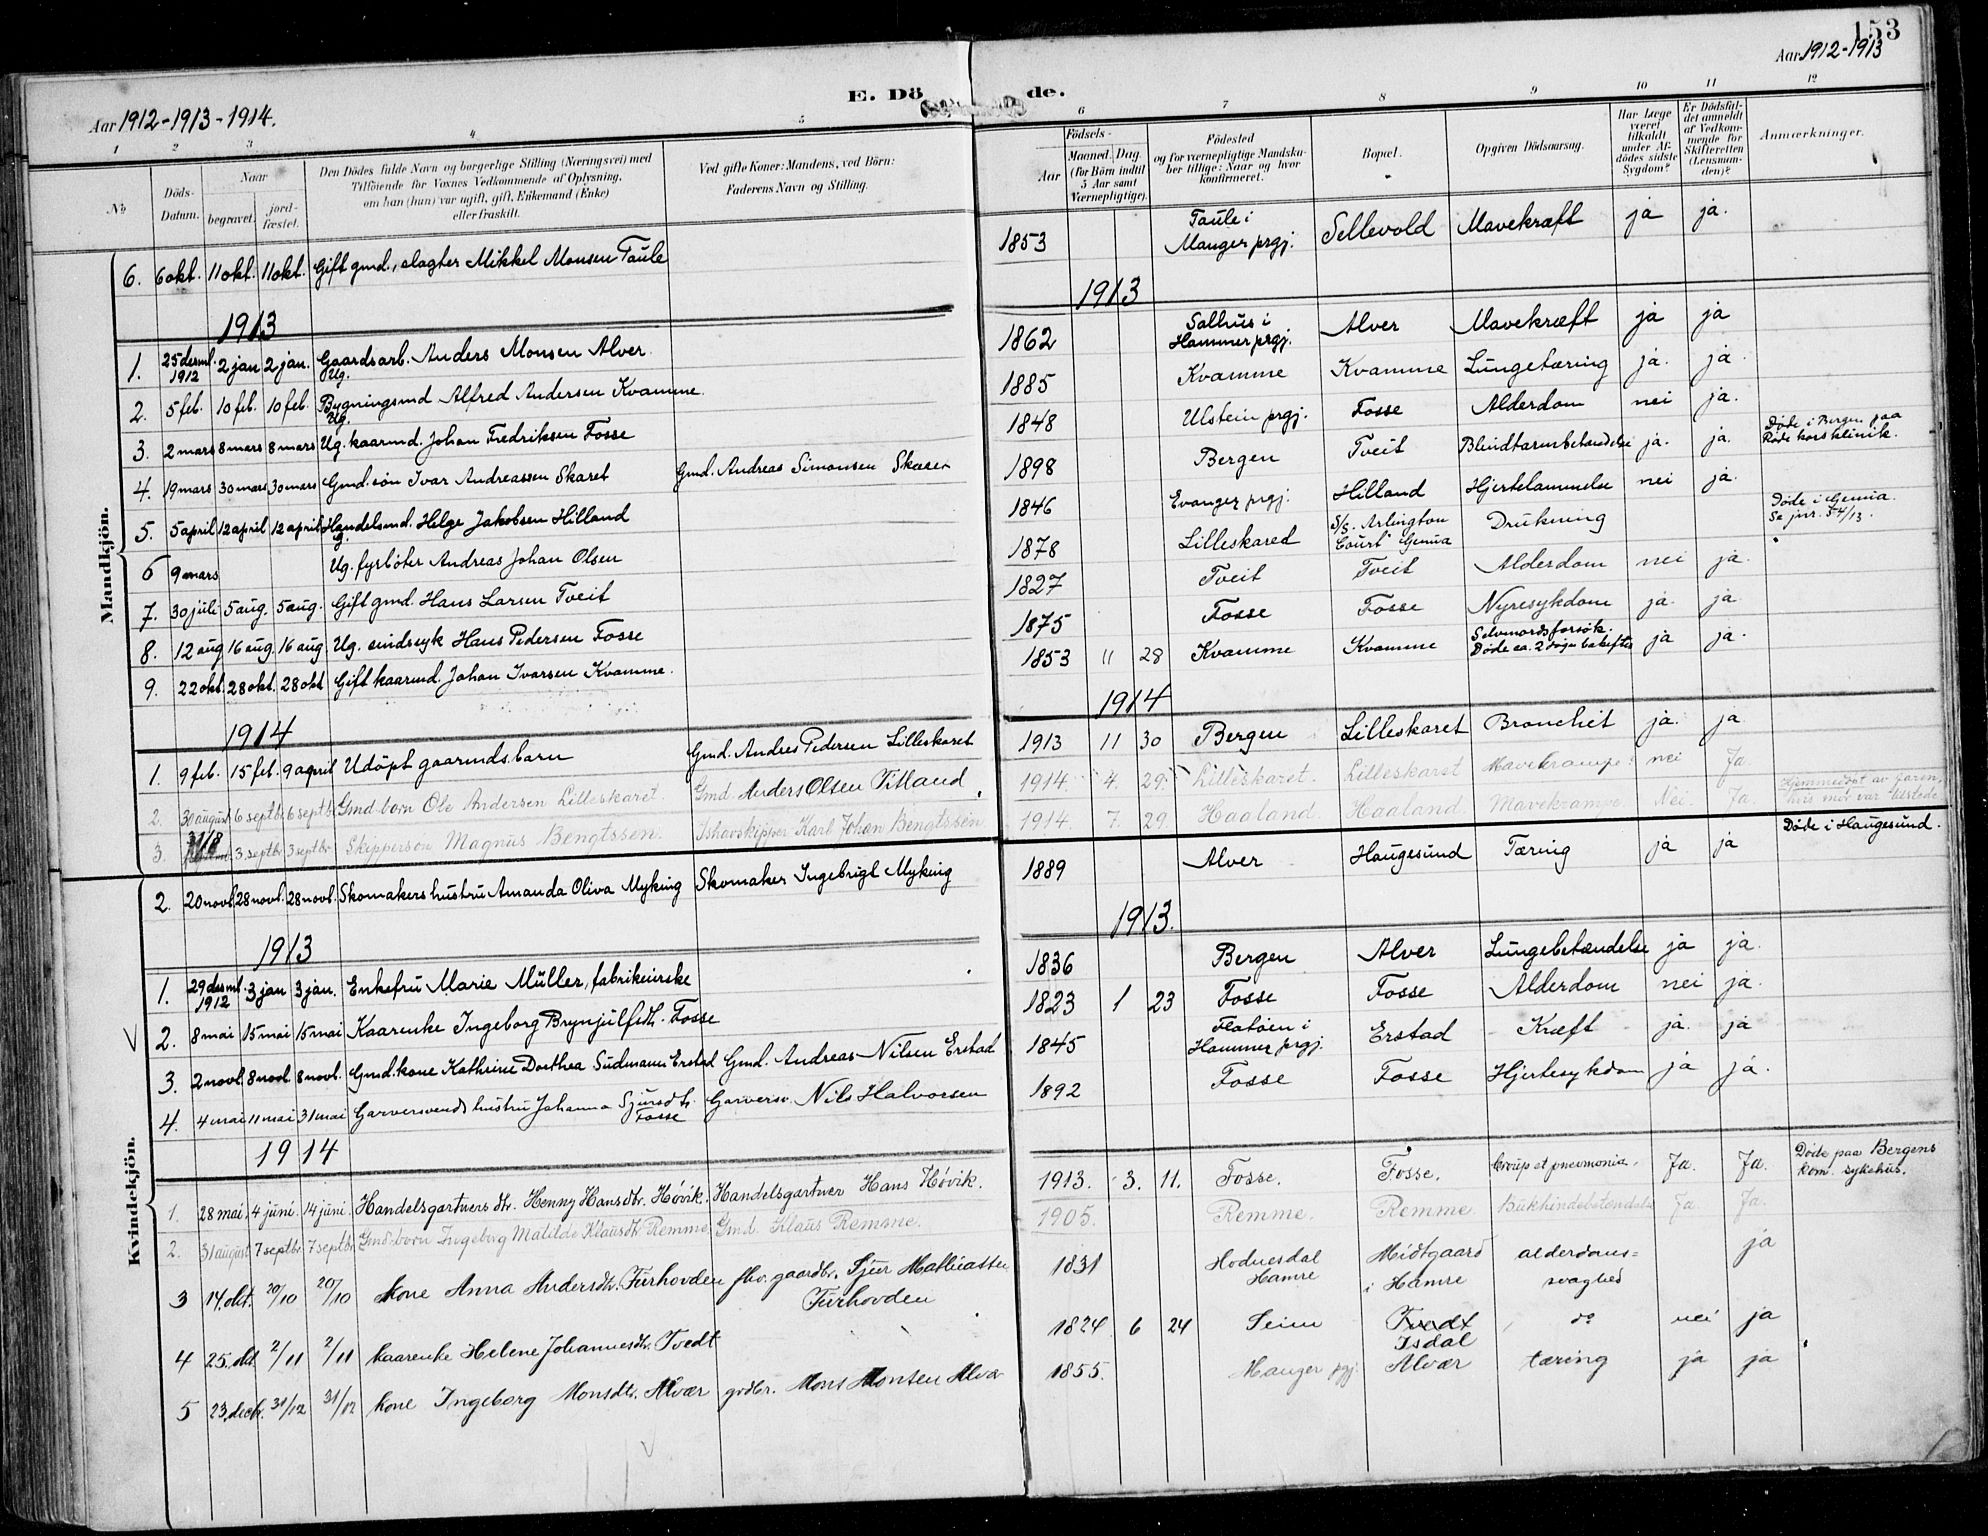 153
Aar 1912-1913-1914.
E. Döde.
Aar 1912-1913
1 2 3 4 5 6 7 8 9 10 11 12
No
Döds-Datum.
Naar
begravet. jord-fæstet.
Den Dödes fulde Navn og borgerlige Stilling (Næringsvei) med
Tilföiende for Voxnes Vedkommende af Oplysning,
om han (hun) var ugift, gift, Enkemand (Enke)
eller fraskilt.
Ved gifte Koner: Mandens, ved Börn:
Faderens Navn og Stilling.
Födsels-
Aar Maaned. Dag.
(for Börn indtil
5 Aar samt
Værnepligtige).
Födested
og for værnepligtige Mandska-
ber tillige: Naar og hvor
konfirmeret.
Bopæl.
Opgiven Dödsaarsag.
Har Læge
været
tilkaldt
under Af-
dødes sidste
Sygdom?
Er Dödsfal-
det anmeldt
af Vedkom-
mende for
Skifteretten
(Lensman-
den)?
Anmærkninger.
Mandkjön.
6. 6 okt. 11 okt. 11 okt. Gift gmd., slagter Mikkel Monsen Taule 1853 Taule i Manger prgj. Sellevold Mavekræft ja ja.
1913 1913
1. 25 desmb. 1912 2 jan 2 jan. Gaardsarb. Anders Monsen Alver Ug. 1862 Salhus i Hammer prgj. Alver Mavekræft ja ja
2. 5 feb. 10 feb. 10 feb. Bygningsmd Alfred Andersen Kvamme Ug. 1885 Kvamme Kvamme Lungetæring ja. ja.
3. 2 mars 8 mars 8 mars Ug. kaarmd. Johan Fredriksen Fosse 1848 Ulstein prgj. Fosse Alderdom nei ja.
4. 19 mars 30 mars 30 mars Gmd. søn Ivar Andreassen Skaret Gmd. Andreas Simonsen Skaret 1898 Bergen Tveit Blindtarmbetændelse ja. ja. Døde i Bergen paa Røde kors klinik.
5. 5 april 12 april 12 april Handelsmd. Helge Jakobsen Hilland 1846 Evanger prgj. Hilland Hjertelammelse nei ja.
6 9 mars Ug. fyrbøter Andreas Johan Olsen 1878 Lilleskared S/S. Arlington Court" Genua Drukning Døde i Genua. Se jnr. 54/13.
7. 30 juli 5 aug. 5 aug. Gift gmd. Hans Larsen Tveit 1827 Tveit Tveit Alderdom nei ja.
8. 12 aug 16 aug. 16 aug Ug. sindssyk Hans Pedersen Fosse 1875 Fosse Fosse Nyresykdom ja. ja.
9. 22 okt. 28 okt. 28 okt Gift kaarmd. Johan Ivarsen Kvamme. 1853 11 28 Kvamme Kvamme Selvmordsforsøk. Døde ca. 2 døgn bakefter ja ja.
1914 1914
1. 9 feb. 15 feb. 9 april Udöpt gaarmds.barn Gmd. Andres Pedersen Lilleskaret 1913 11 30 Bergen Lilleskaret Bronchit ja. ja
2. 30 august 6 septbr. 6 septbr. Gmd.born Ole Andersen Lilleskaret. Gmd. Anders Olsen Titland 1914. 4. 29. Lilleskaret. Lilleskaret Mavekrampe nei Ja. Hjemmedøpt av faren, hvis mor var tilstede
3. 31/8 3 septbr. 3 septbr. Skippersøn Magnus Bengtssen. Ishavskipper Karl Johan Bengtssen 1914. 7. 29. Haaland. Haaland. Mavekrampe. Nei. Ja.
Kvindekjön.
2. 20 novb. 28 novb. 28 novb. Skomakers hustru Amanda Oliva Myking Skomaker Ingebrigt Myking 1889 Alver Haugesund Tæring ja ja Døde i Haugesund.
1913 1913.
1. 29 desmb. 1912 3 jan 3 jan. Enkefru Marie Müller, fabrikeierske 1836 Bergen Alver Lungebetændelse ja ja.
2. 8 mai 15 mai 15 mai Kaarenke Ingeborg Brynjulfsdt. Fosse 1823 1 23 Fosse Fosse Alderdom nei ja.
3. 2 novb. 8 novb. 8 novb. Gmd.kone Kathrine Dorthea Sudmann Erstad Gmd. Andreas Nilsen Erstad 1845 Flatøen i Hammer prgj. Erstad Kræft ja. ja
4. 4 mai 11 mai 31 mai Garversvends hustru Johanna Sjursdt. Fosse Garversv. Nils Halvorsen 1892 Fosse Fosse Hjertesykdom ja ja.
1914
1. 28 mai. 4 juni. 14 juni. Handelsgartners dtr. Henny Hansdtr. Hövik. Handelsgartner Hans Hövik. 1913. 3. 11. Fosse. Fosse. Croup et pneumonia. Ja. Ja. Døde paa Bergens kom. sykehus.
2. 31 august 7 septbr. 7 septbr. Gmd.born Ingeborg Matilde Klausdtr Remme Gmd. Klaus Remme. 1905. Remme. Remme. Bukhindebetændelse Ja. Ja.
3 14. okt. 20/10 20/10 Kone Anna Andersdtr. Furhovden fhv. gaardbr. Sjur Mathiassen Furhovden 1831 Hodnesdal Hamre Midtgaard i Hamre alderdoms= svaghed ja
4 25. okt 2/11 2/11 kaarenke Helene Johannesdtr. Tvedt 1824 6 24 Seim Tvedt Isdal do nei ja
5 23. decbr. 31/12 31/12 kone Ingeborg Monsdtr. Alvær grdbr. Mons Monsen Alvær 1855. Manger pgj. Alvær tæring ja ja